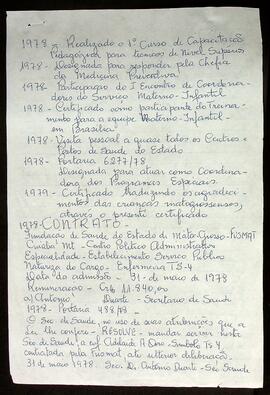 1978 - Realizado o 1º Curso de Capacitação
Pedagógica para técnicos de Nível Superior
1978 - Designada para responder pela Chefia
da Medicina Preventiva
1978 - Participação do I Encontro de Coordena-
dores do Serviço Materno-Infantil
1978 - Certificado como participante do Treina-
mento para a equipe Materno-Infantil-
em Brasília
1978 - Visita pessoal a quase todos os Centros e
Postos de Saúde do Estado
1978 - Portaria 6277/78
Designada para atuar como Coordena-
dora dos Programas Especiais.
1979 - Certificado traduzindo os agradeci-
mentos das crianças matogrossenses,
através o presente certificado
1978 - CONTRATO -
Fundação de Saúde do Estado de Mato Grosso - FUSMAT
Cuiabá Mt - Centro Político Administrativo
Especialidade - Estabelecimento Serviço Público
Natureza do Cargo - Enfermeira TS-4
Data da admissão - 31 de maio de 1978
Remuneração - Cr$ 11.840,00
a) Antonio Duarte - Secretário de Saúde
1978 - Portaria 488/78
O Sec de Saúde, no uso de suas atribuições que a
Lei lhe confere - RESOLVE - mandar servir nesta
Sec de Saúde, a col. Símbolo TS 4
contratada pela Fusmat até ulterior deliberação.
31 de maio 1978. Sec. D. Antonio Duarte - Sec Saúde